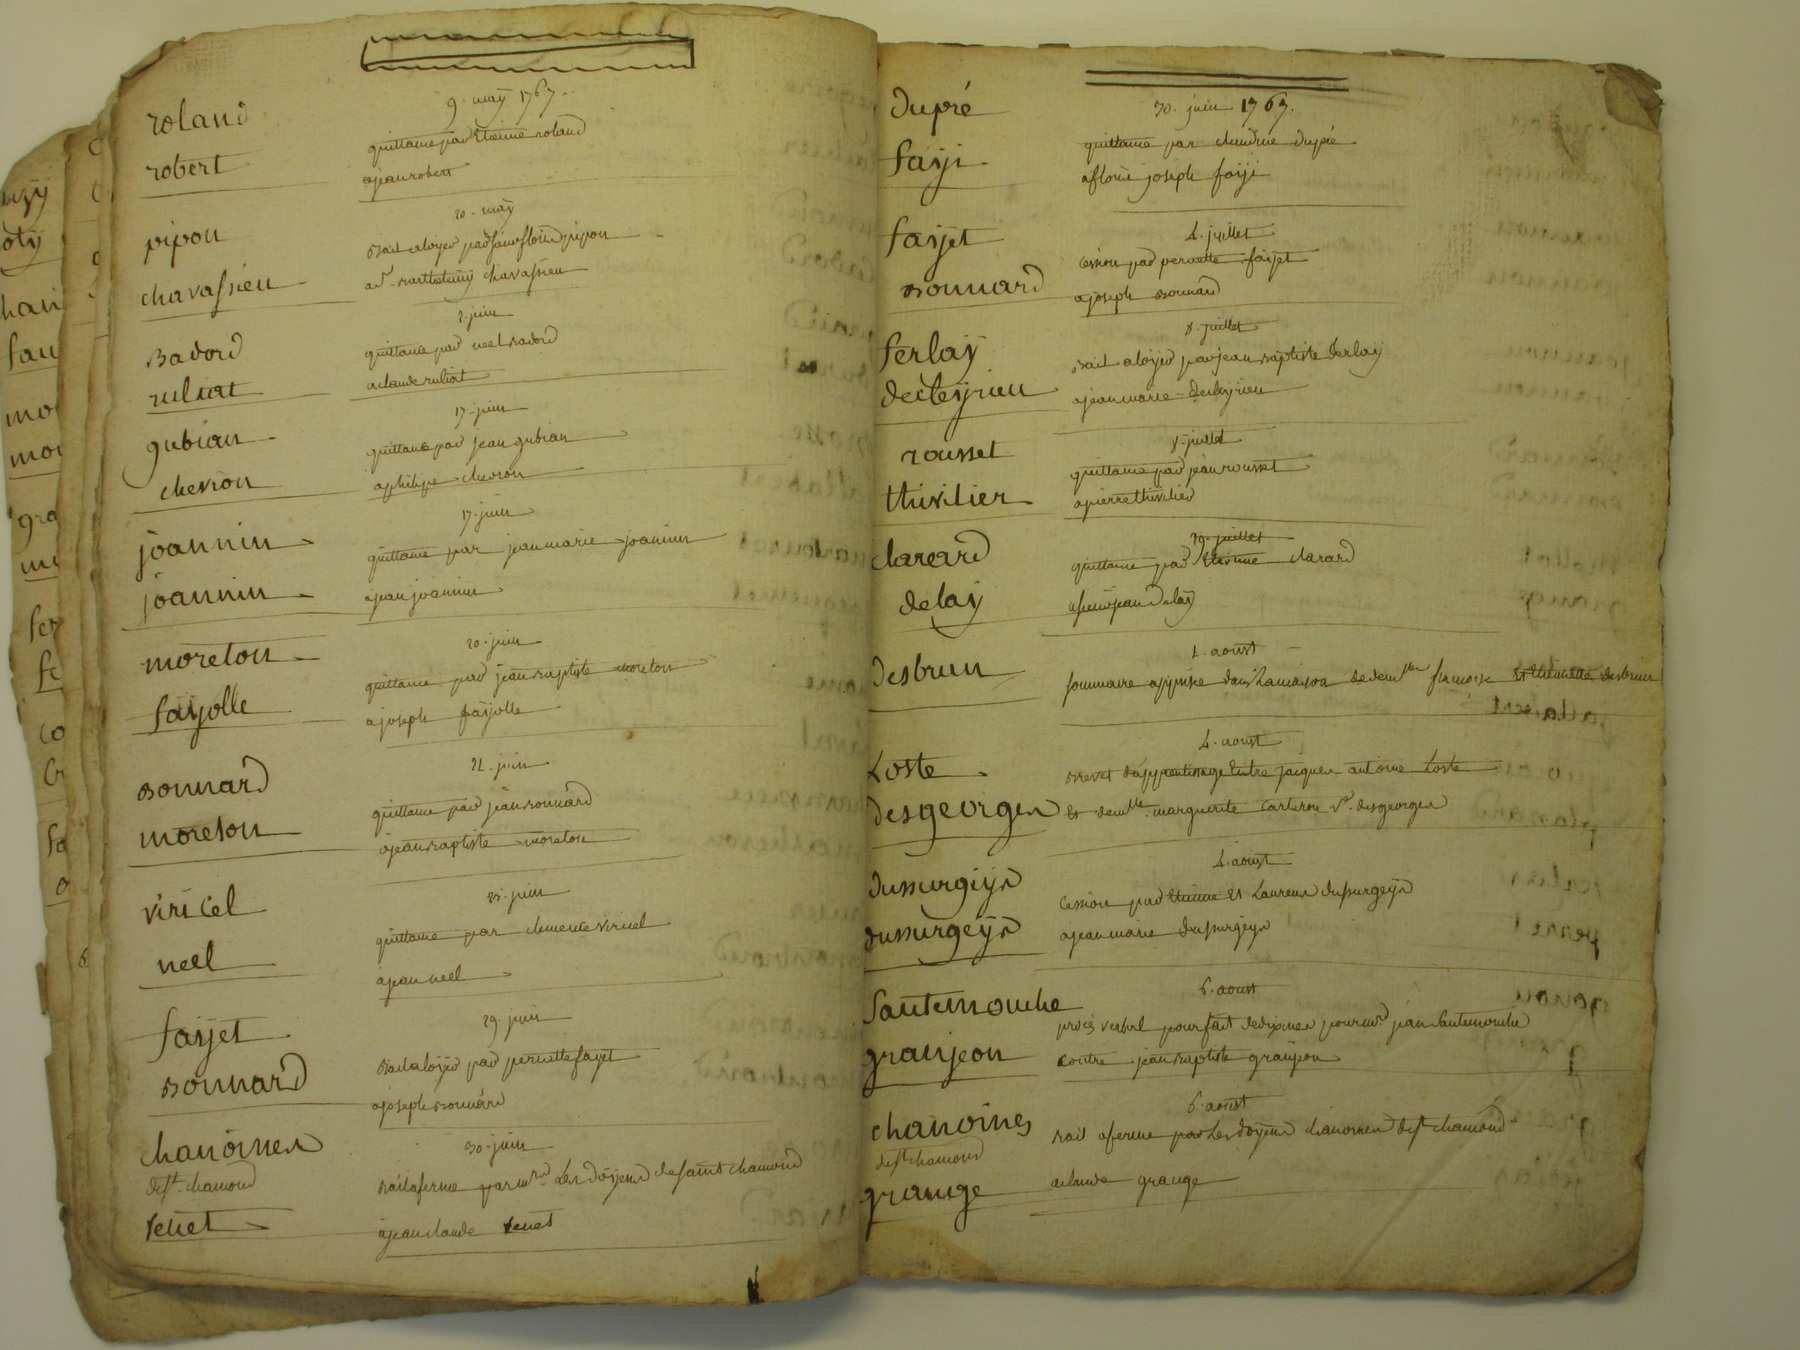 9. may 1767.
roland
quittance par Etienne roland
robert
a jean robert
20. may
pipon
Bail a loyer par sieur floris pipon
chavassieu
a sr. barthelemy chavassieu
2. juin
Badord
quittance par neel badord
rulliat
a claude rulliat
17. juin
gubian
quittance par jean gubian
chevron
a philipe chevron
17. juin
joannin
quittance par jean marie joannin
joannin
a jean joannin
20. juin
moreton
quittance par jean baptiste moreton
fayolle
a joseph fayolle
21. juin
Bonnard
quittance par jean bonnard
moreton
a jean baptiste moreton
juin
viricel
quittance par clemence viricel
neel
a jean neel
29. juin
fayet
Bail a loyer par pernette fayet
Bonnard
a joseph bonnard
30. juin
chanoines
de st. chamond
Bail a ferme par mrs. Les doyens de saint chamond
venet
a jean claude venet
30. juin 1767.
dupré
quittance par claudine dupré
fayi
a floris joseph fayi
4. juillet
fayet
Cession par pernette fayet
Bonnard
a joseph Bonnard
8. juillet
ferlay
Bail a loyer par jean baptiste ferlay
decleyrieu
a jean marie decleyrieu
8. juillet
rousset
quittance par jean rousset
thivilier
a pierre thivilier
29. juillet
clarard
quittance par Etienne clarard
delay
a sieur jean delay
1. aoust
desbrun
sommaire apprise dans La maison de demlle francoise Et thiennette desbrun
4. aoust
Loste
Brevet d'apprentissage Entre jacques antoine Loste
desgeorges
Et demlle. marguerite carteron ve. desgeorges
4. aoust
dussurgeys
Cession par Etienne Et Laurens dussurgeys
dussurgeys
a jean marie dussurgeys
6. aoust
Sautemouche
procès verbal pour fait de dixmes pour mr. jean Sautemouche
granjeon
contre jean baptiste granjeon
6. aoust
chanoines
de st. chamond
Bail a ferme par Les doyens chanoines de st. chamond
grange
a claude grange